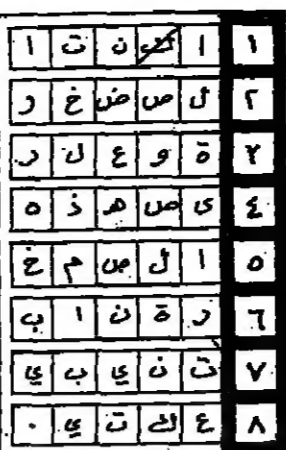 ١ ا ك ن ت ا
٢ ل ص ض خ ر
٣ ة و ع ل ر
٤ ى ص ه ذ ه
٥ ا ل ص م خ
٦ ر ة ن ا ب
٧ ت ن ي ب ي
٨ ع ك ت ي .